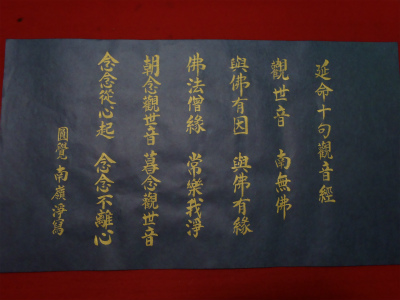 延命十句觀音經
觀世音 南無佛
與佛有因 與佛有緣
佛法僧緣 常樂我淨
朝念觀世音 暮念觀世音
念念從心起 念念不離心
圓覺 南嶺淨寫